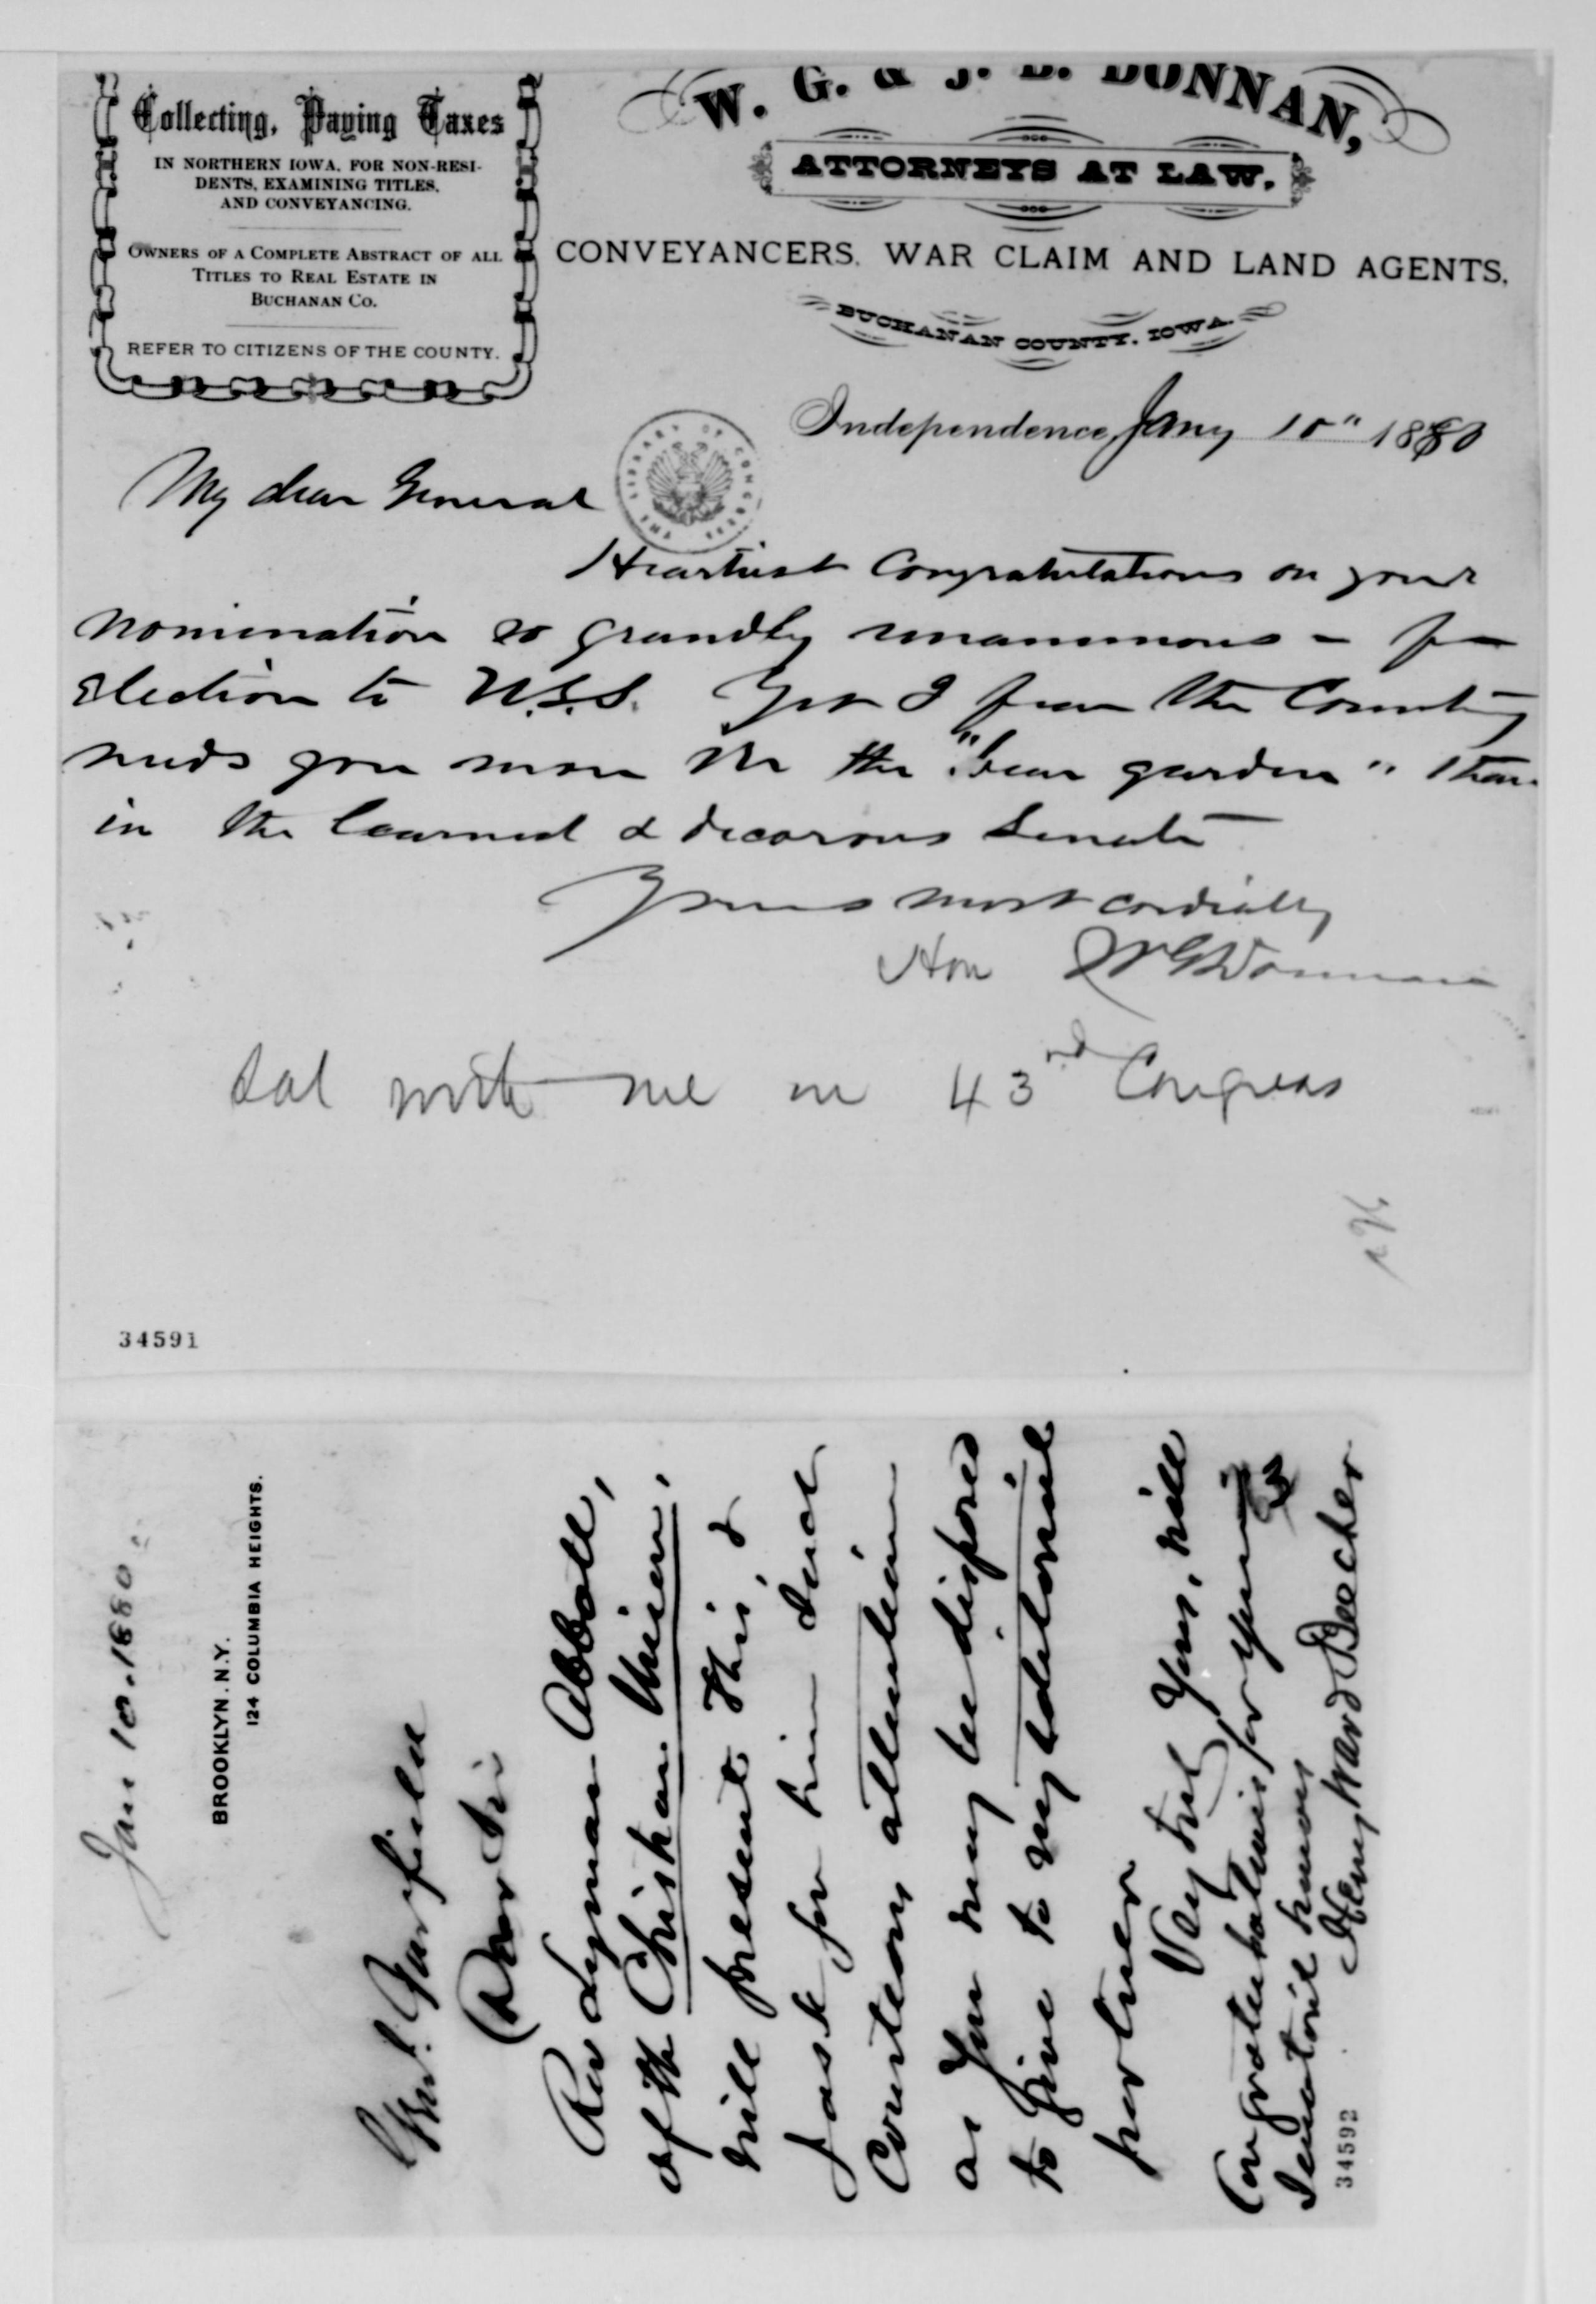 Collecting, Paying Taxes
IN NORTHERN IOWA, FOR NON-RESI-
DENTS, EXAMINING TITLES,
AND CONVEYANCING.
OWNERS OF A COMPLETE ABSTRACT OF ALL
TITLES TO REAL ESTATE IN
BUCHANAN CO.
REFER TO CITIZENS OF THE COUNTY.
W. G. & J. B. DONNAN,
ATTORNEYS AT LAW,
CONVEYANCERS, WAR CLAIM AND LAND AGENTS,
BUCHANAN COUNTY, IOWA.
Independence, Jany 10" 1880
THE LIBRARY OF CONGRESS
My dear General
Heartiest Congratulations on your
nomination so grandly unanimous - for
Election to U.S.S. Yet I fear the Country
needs you more in the "bear garden" than
in the learned & decorous Senate
Yours most cordially
Hon W G Donnan
Sat with me in 43rd Congress
34591
Jan 10. 1880.
BROOKLYN. N.Y.
124 COLUMBIA HEIGHTS.
Genl. Garfield
Dear Sir
Rev Lyman Abbott,
of the Christian Union,
will present this, &
I ask for him such
Courteous attention
as you may be disposed
to give to my editorial
partner
Very truly Yours,
Congratulations for your
Senatorial honors
Henry Ward Beecher
34592